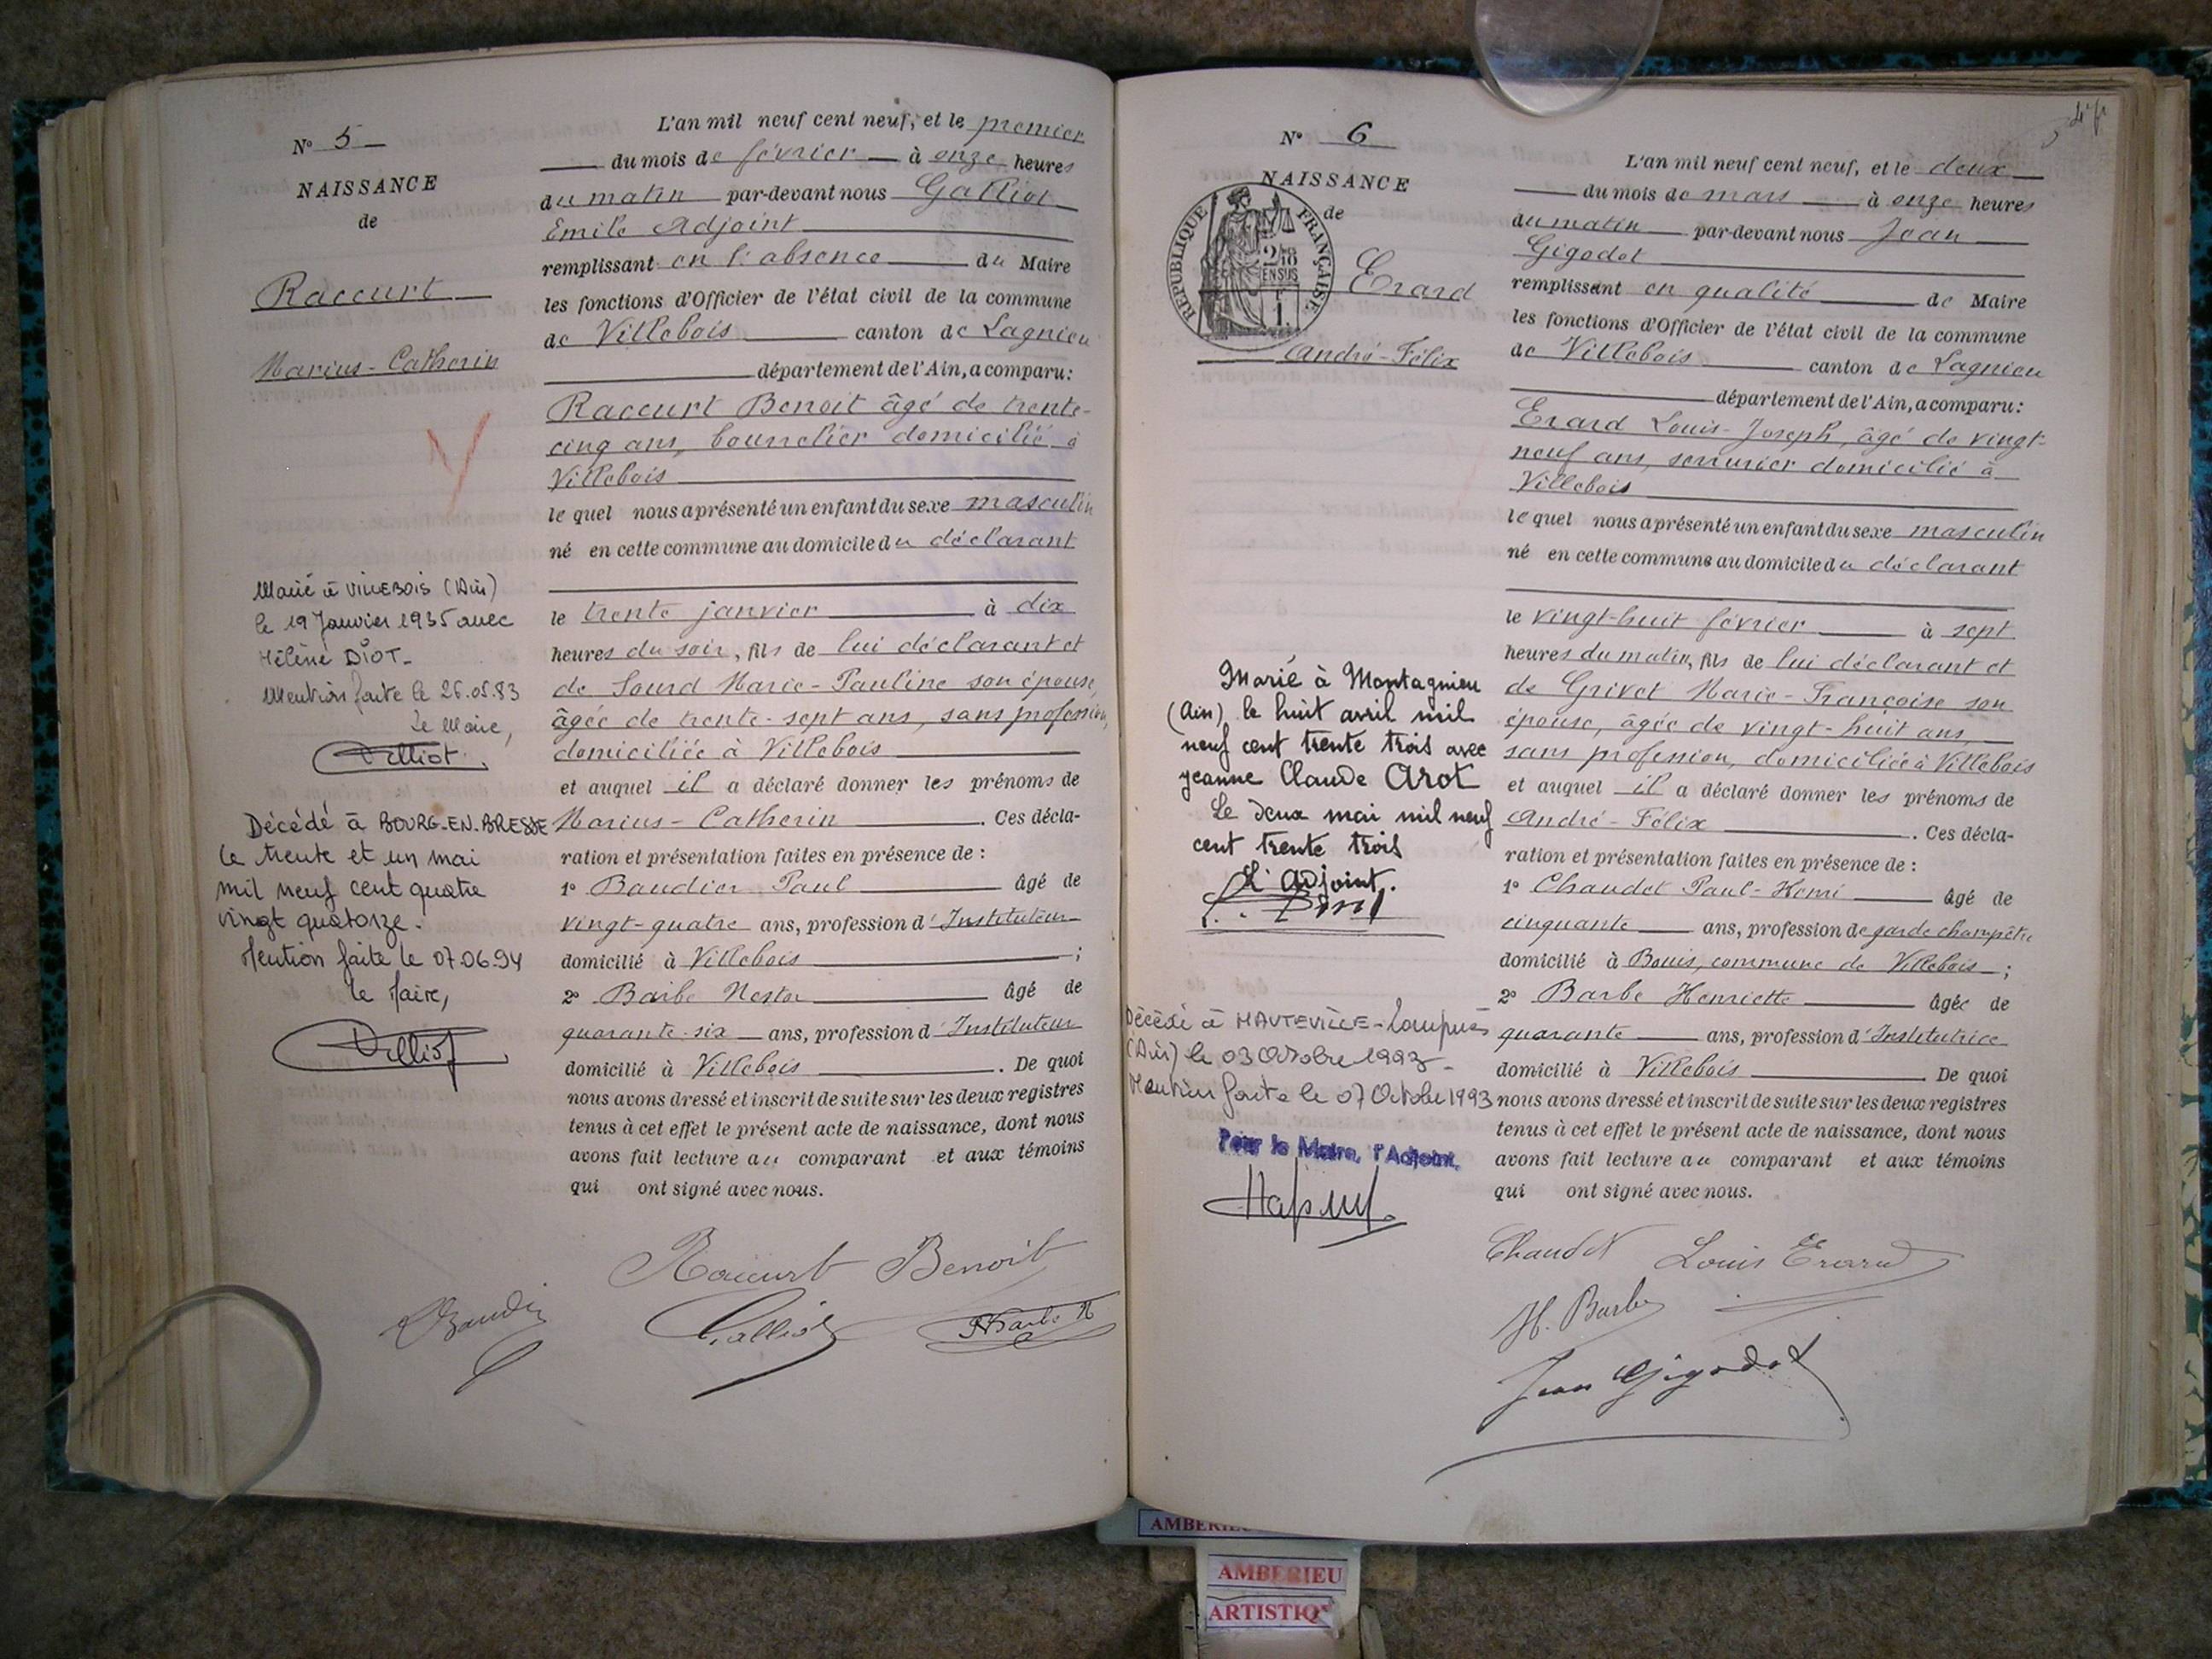 N° 5
NAISSANCE
de
Raccurt
Marius-Catherin
Marié à VILLEBOIS (Ain)
le 19 Janvier 1935 avec
Hélène DIOT.
Mention faite le 26.05.83
Le Maire,
Décédé à BOURG-EN-BRESSE
le trente et un mai
mil neuf cent quatre
vingt quatorze.
Mention faite le 07.06.94
le Maire,
L'an mil neuf cent neuf, et le premier
du mois de février à onze heures
du matin par-devant nous Galliot
Emile Adjoint
remplissant en l'absence du Maire
les fonctions d'Officier de l'état civil de la commune
de Villebois canton de Lagnieu
département de l'Ain, a comparu:
Raccurt Benoit âgé de trente-
cinq ans, bourrelier domicilié à
Villebois
le quel nous a présenté un enfant du sexe masculin
né en cette commune au domicile du déclarant
le trente janvier à dix
heures du soir, fils de lui déclarant et
de Sourd Marie-Pauline son épouse,
âgée de trente-sept ans, sans profession,
domiciliée à Villebois
et auquel il a déclaré donner les prénoms de
Marius-Catherin. Ces décla-
ration et présentation faites en présence de :
1° Baudier Paul âgé de
vingt-quatre ans, profession d'Instituteur
domicilié à Villebois ;
2° Barbe Nestor âgé de
quarante-six ans, profession d'Instituteur
domicilié à Villebois. De quoi
nous avons dressé et inscrit de suite sur les deux registres
tenus à cet effet le présent acte de naissance, dont nous
avons fait lecture au comparant et aux témoins
qui ont signé avec nous.
Raccurt Benoit
Galliot
N° 6
NAISSANCE
de
RÉPUBLIQUE FRANÇAISE
Erard
André-Félix
Marié à Montagnieu
(Ain) le huit avril mil
neuf cent trente trois avec
Jeanne Claude Arot
Le deux mai mil neuf
cent trente trois
L'Adjoint.
Décédé à HAUTEVILLE-Lompnes
(Ain) le 03 Octobre 1993
Mention faite le 07 Octobre 1993
Pour le Maire, l'Adjoint,
L'an mil neuf cent neuf, et le deux
du mois de mars à onze heures
du matin par-devant nous Jean
Gigodot
remplissant en qualité de Maire
les fonctions d'Officier de l'état civil de la commune
de Villebois canton de Lagnieu
département de l'Ain, a comparu:
Erard Louis-Joseph, âgé de vingt-
neuf ans, serrurier domicilié à
Villebois
le quel nous a présenté un enfant du sexe masculin
né en cette commune au domicile du déclarant
le vingt-huit février à sept
heures du matin, fils de lui déclarant et
de Grivet Marie-Françoise son
épouse, âgée de vingt-huit ans,
sans profession, domiciliée à Villebois
et auquel il a déclaré donner les prénoms de
André-Félix. Ces décla-
ration et présentation faites en présence de :
1° Chaudet Paul-Henri âgé de
cinquante ans, profession de garde champêtre
domicilié à Bouis, commune de Villebois ;
2° Barbe Henriette âgée de
quarante ans, profession d'Institutrice
domicilié à Villebois. De quoi
nous avons dressé et inscrit de suite sur les deux registres
tenus à cet effet le présent acte de naissance, dont nous
avons fait lecture au comparant et aux témoins
qui ont signé avec nous.
Chaudet Louis Erard
H. Barbe
Jean Gigodot
AMBERIEU
ARTISTIQ